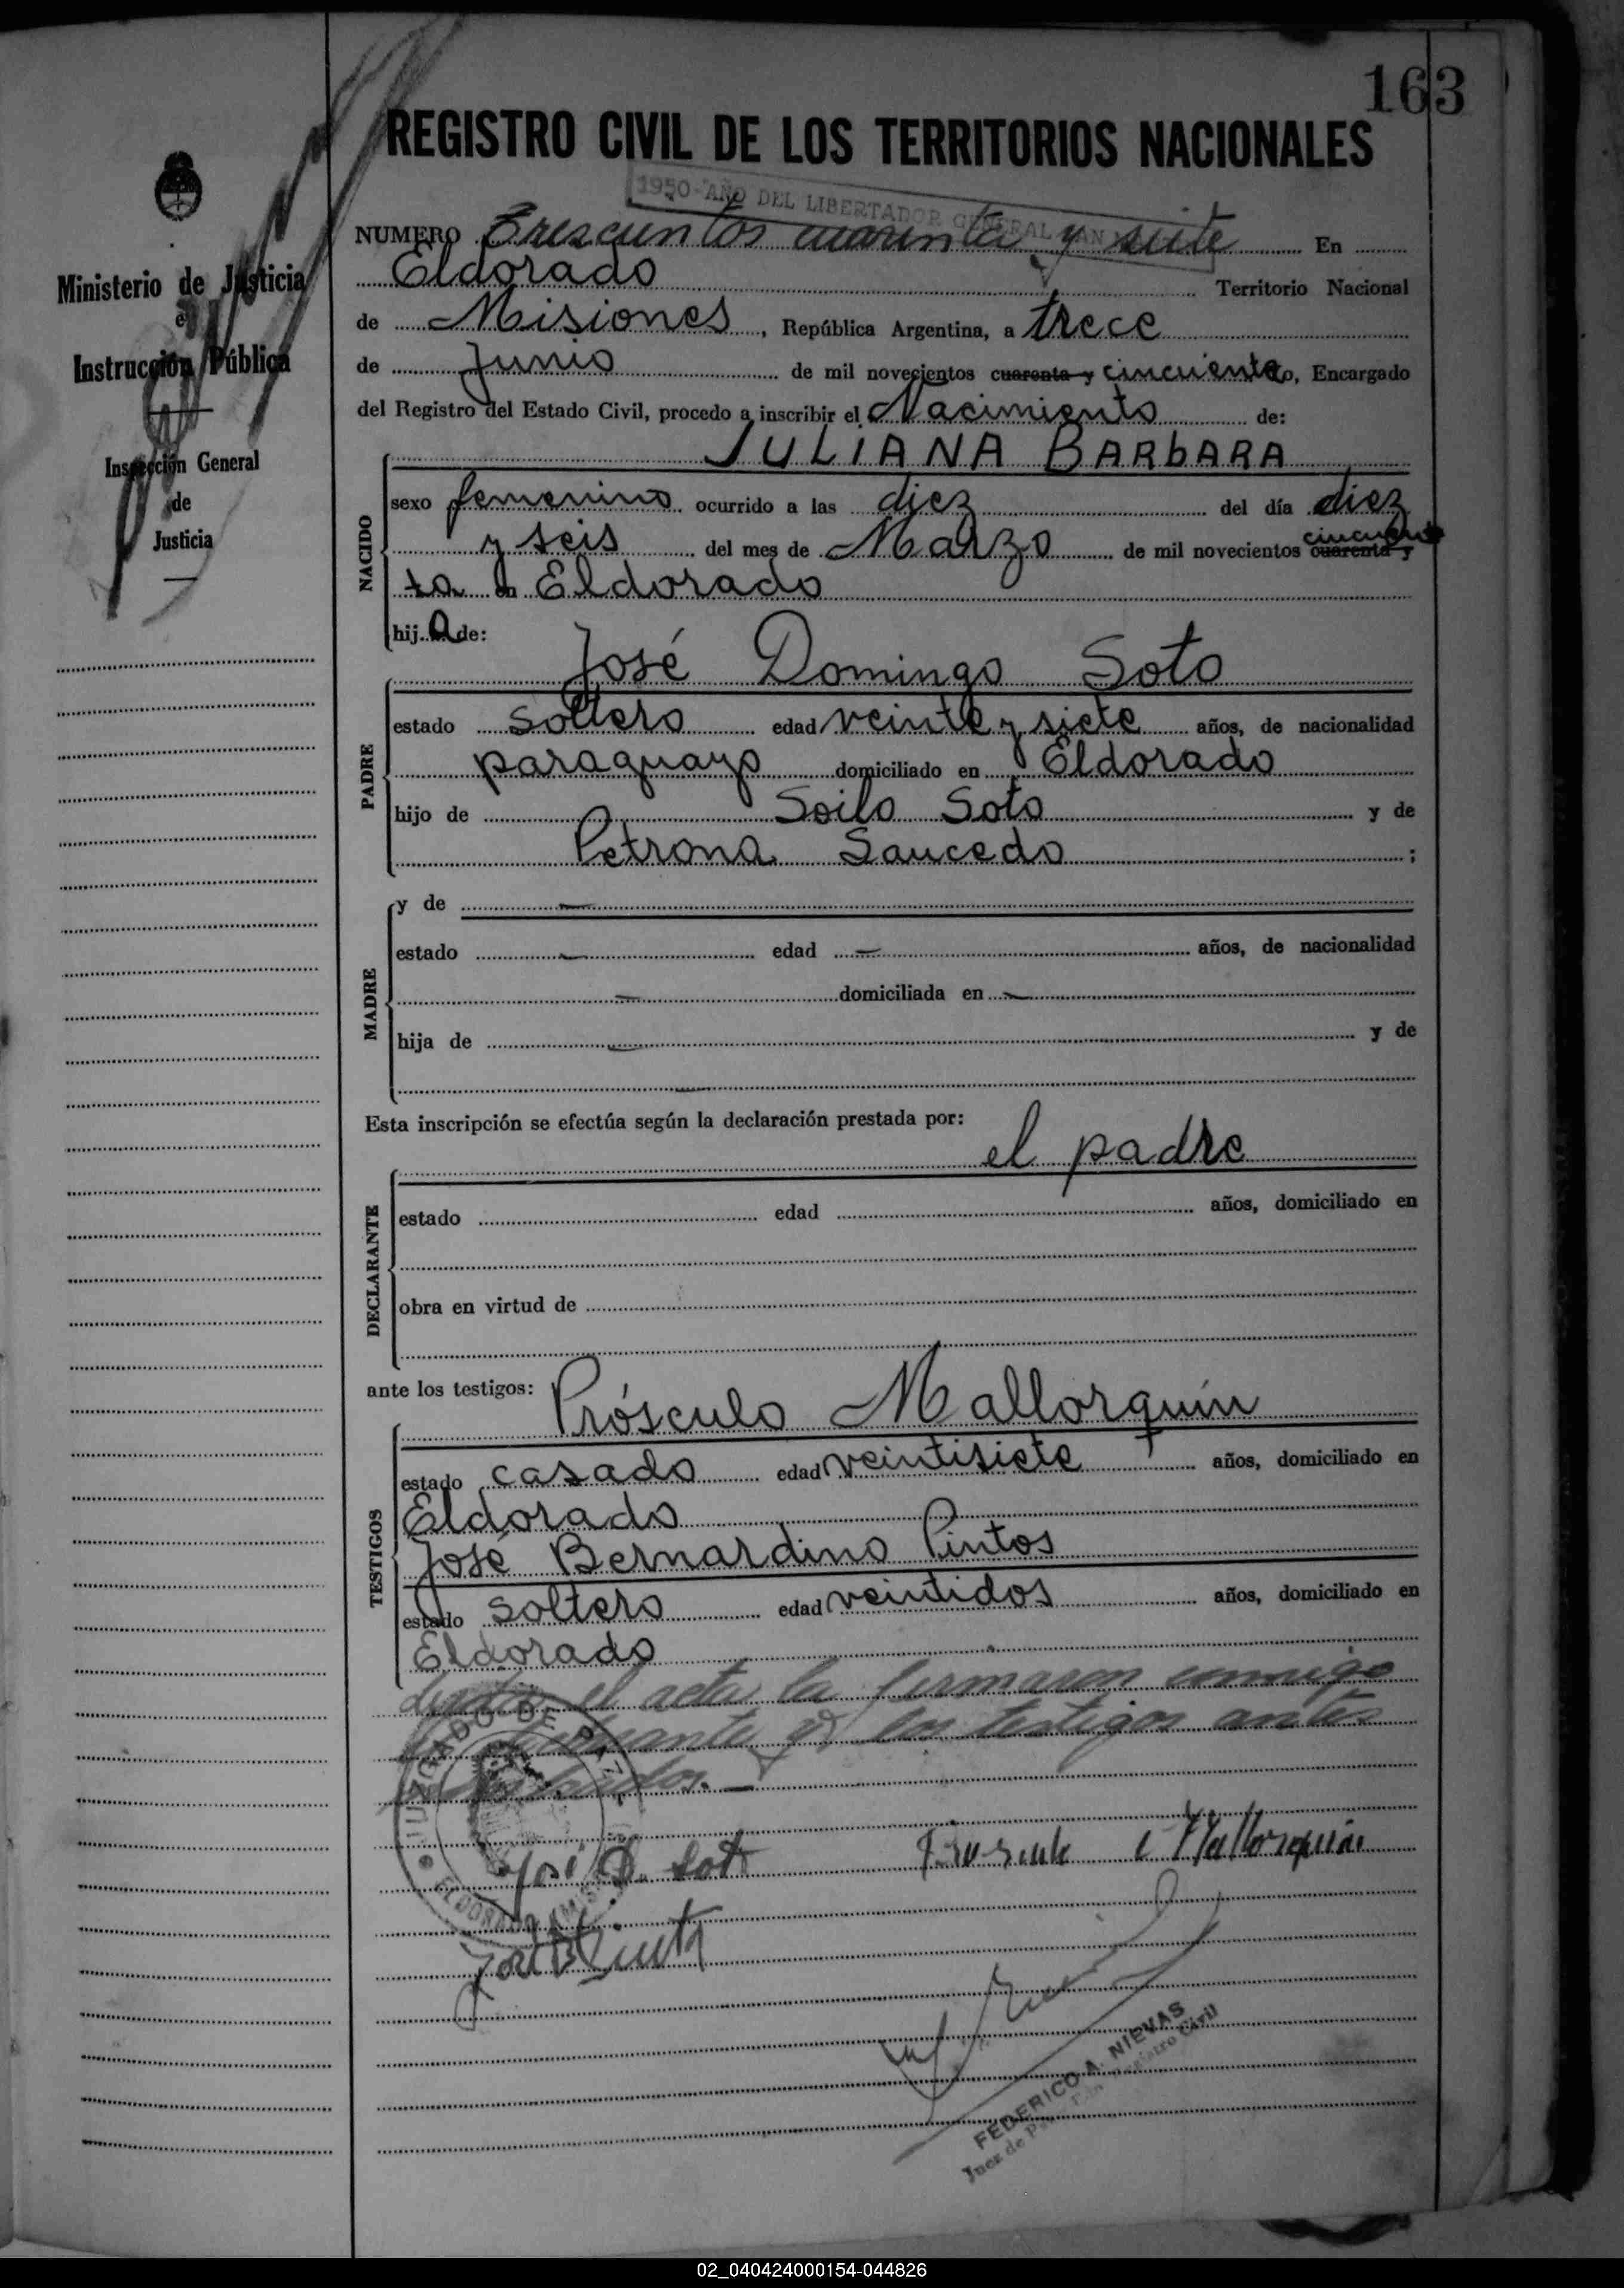 163
REGISTRO CIVIL DE LOS TERRITORIOS NACIONALES
1950-AÑO DEL LIBERTADOR GENERAL SAN
Ministerio de Justicia
e
Instrucción Pública
Inspección General
de
Justicia
NUMERO Trescientos cuarenta y siete En
Eldorado Territorio Nacional
de Misiones, República Argentina, a trece
de Junio de mil novecientos cuarenta y cincuenta, Encargado
del Registro del Estado Civil, procedo a inscribir el Nacimiento de:
JULIANA BARbARA
NACIDO
sexo femenino ocurrido a las diez del día diez
y seis del mes de Marzo de mil novecientos cuarenta y cincuen
ta en Eldorado
hija de:
José Domingo Soto
PADRE
estado soltero edad veinte y siete años, de nacionalidad
paraguayo domiciliado en Eldorado
hijo de Soilo Soto y de
Petrona Saucedo ;
MADRE
y de —
estado — edad — años, de nacionalidad
— domiciliada en —
hija de — y de
—
Esta inscripción se efectúa según la declaración prestada por:
el padre
DECLARANTE
estado edad años, domiciliado en
obra en virtud de
ante los testigos: Prósculo Mallorquín
TESTIGOS
estado casado edad veintisiete años, domiciliado en
Eldorado
José Bernardino Pintos
estado soltero edad veintidos años, domiciliado en
Eldorado
el acta la firmaron conmigo
y los testigos antes
JUZGADO DE PAZ
ELDORADO
José D. Soto
Mallorquin
FEDERICO A. NIEVAS
Juez de Paz Registro Civil
02_040424000154-044826